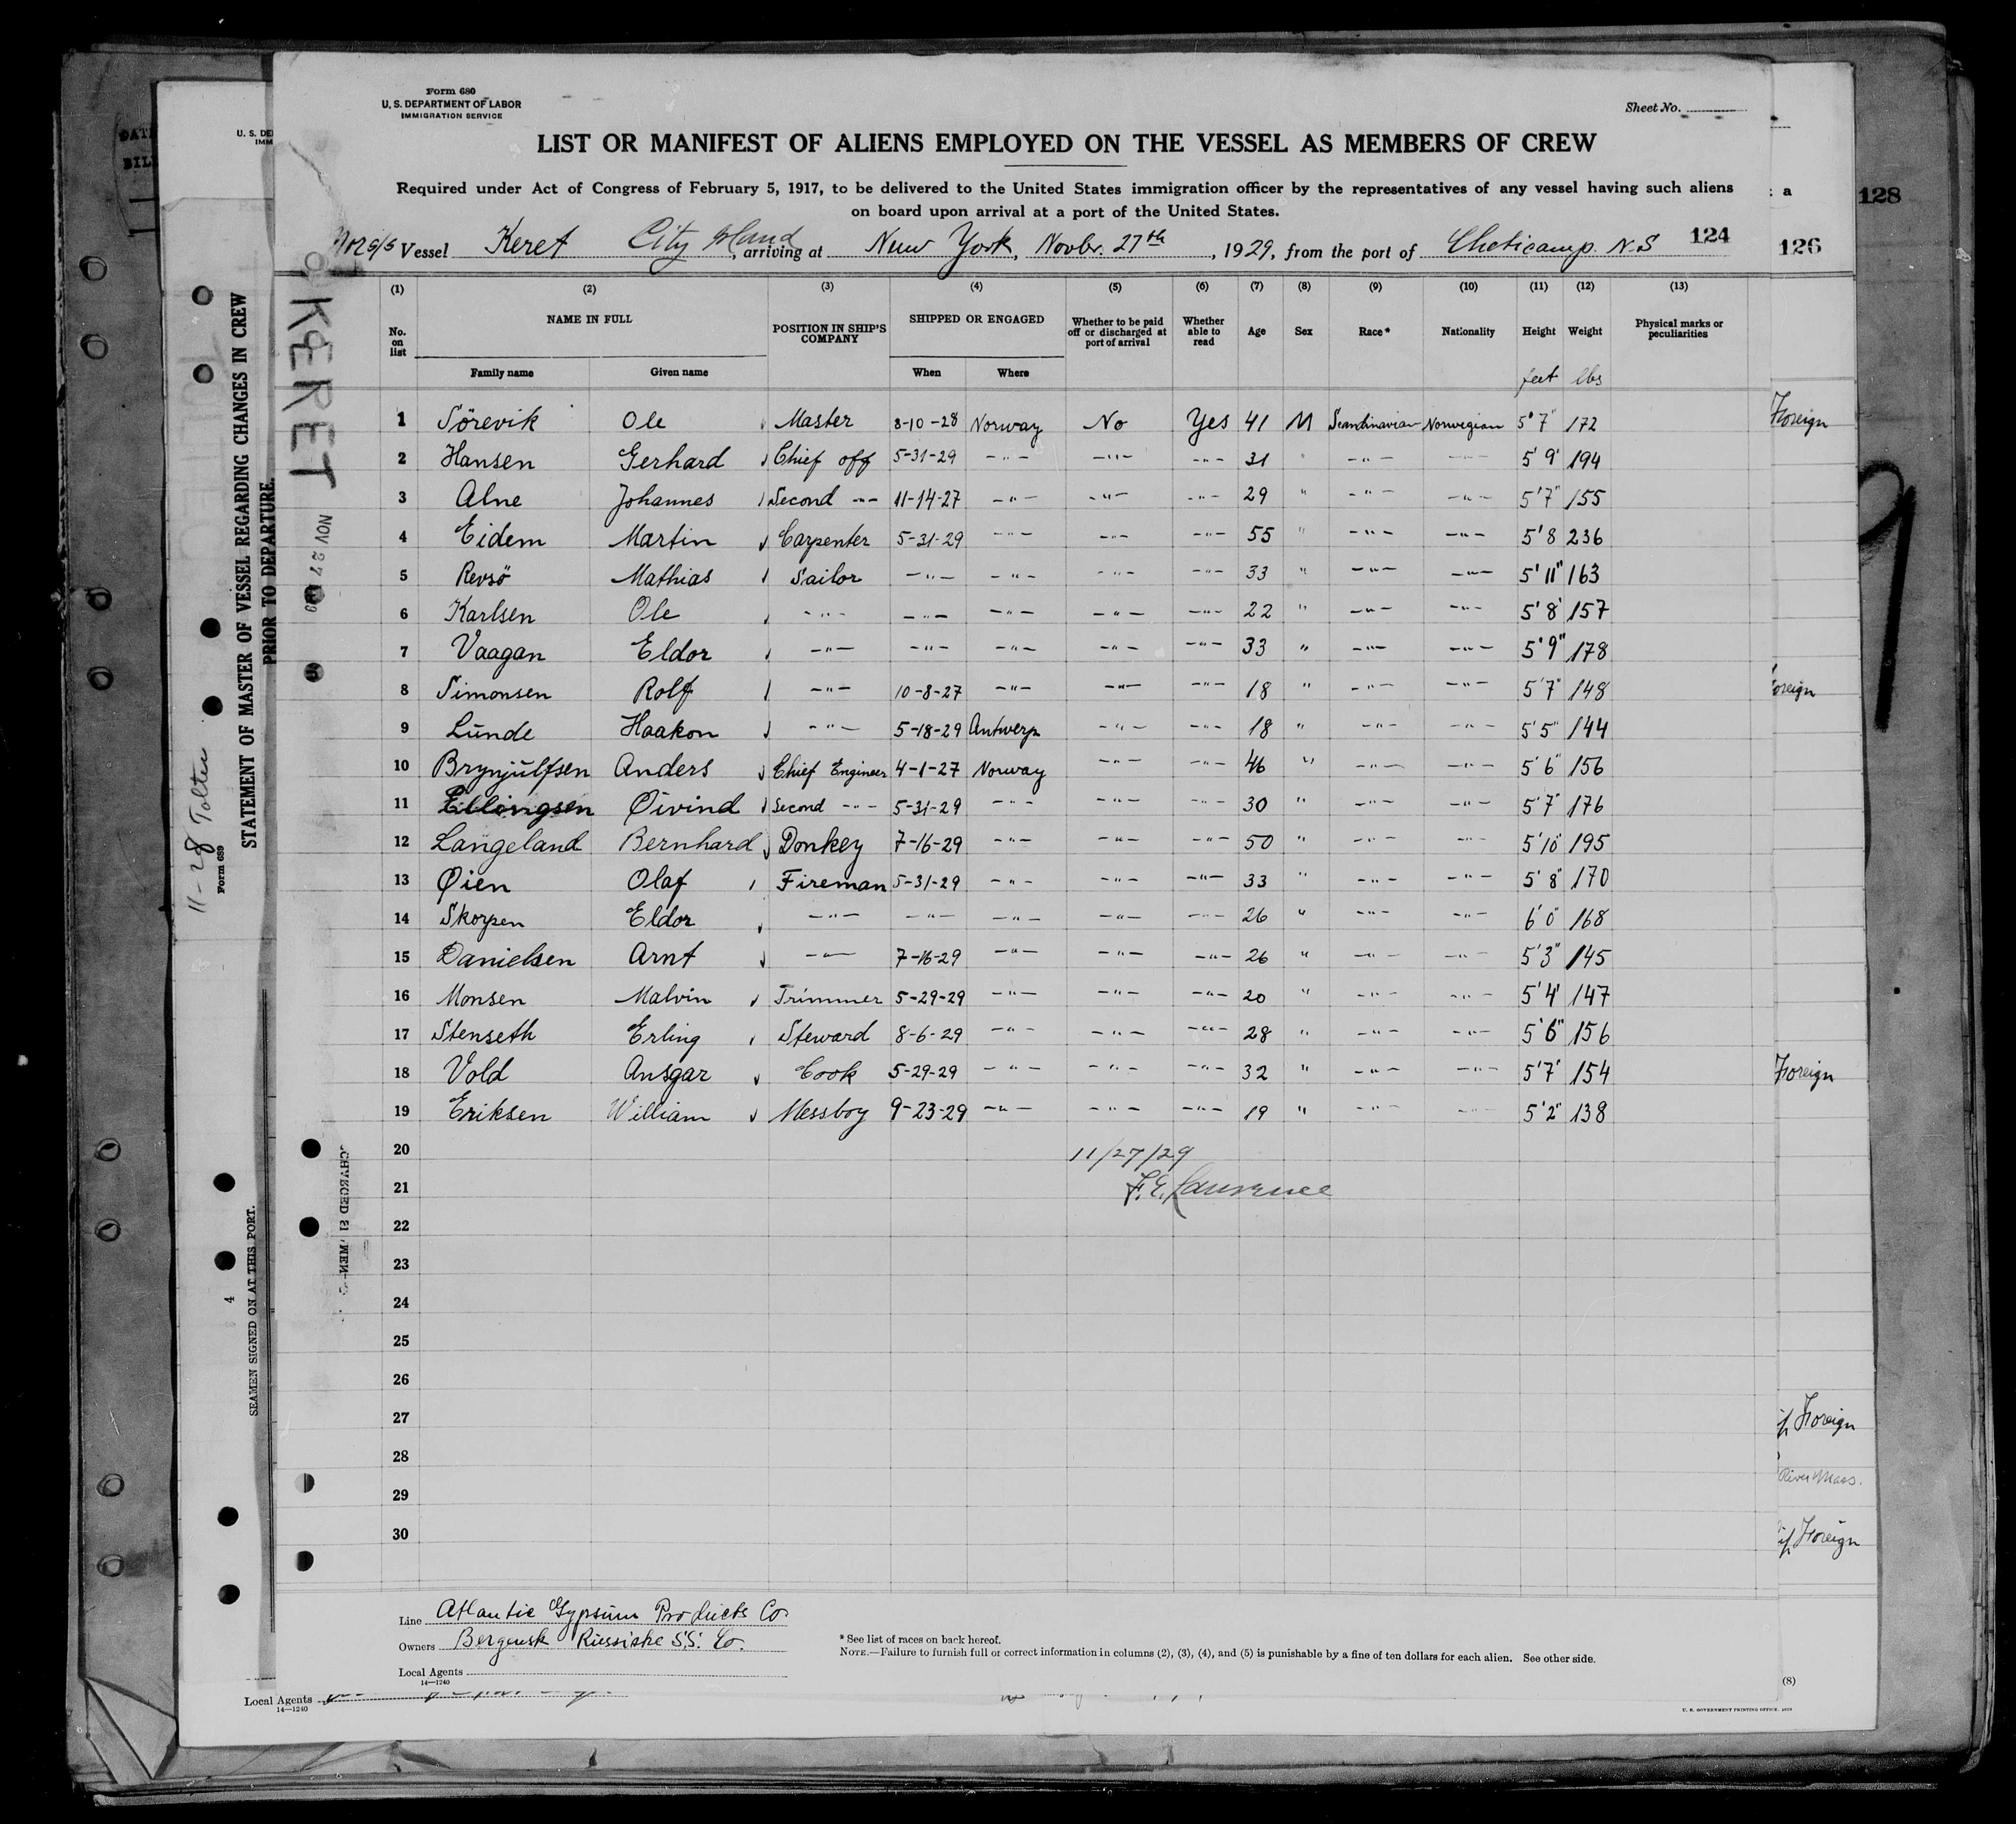 Form 680
U. S. DEPARTMENT OF LABOR
IMMIGRATION SERVICE
Sheet No.
LIST OR MANIFEST OF ALIENS EMPLOYED ON THE VESSEL AS MEMBERS OF CREW
Required under Act of Congress of February 5, 1917, to be delivered to the United States immigration officer by the representatives of any vessel having such aliens
on board upon arrival at a port of the United States.
S/S Vessel Keret City Island, arriving at New York, Novbr. 27th, 1929, from the port of Cheticamp. N.S 124
(1) (2) (3) (4) (5) (6) (7) (8) (9) (10) (11) (12) (13)
No. on list NAME IN FULL POSITION IN SHIP'S COMPANY SHIPPED OR ENGAGED Whether to be paid off or discharged at port of arrival Whether able to read Age Sex Race* Nationality Height Weight Physical marks or peculiarities
Family name Given name When Where feet lbs
1 Sörevik Ole Master 8-10-28 Norway No Yes 41 M Scandinavian Norwegian 5'7" 172
2 Hansen Gerhard Chief off 5-31-29 -"- -"- -"- 31 " -"- -"- 5'9' 194
3 Alne Johannes Second -"- 11-14-27 -"- -"- -"- 29 " -"- -"- 5'7" 155
4 Eidem Martin Carpenter 5-31-29 -"- -"- -"- 55 " -"- -"- 5'8 236
5 Revsö Mathias Sailor -"- -"- -"- -"- 33 " -"- -"- 5'11" 163
6 Karlsen Ole -"- -"- -"- -"- -"- 22 " -"- -"- 5'8' 157
7 Vaagan Eldor -"- -"- -"- -"- -"- 33 " -"- -"- 5'9" 178
8 Simonsen Rolf -"- 10-8-27 -"- -"- -"- 18 " -"- -"- 5'7" 148
9 Lunde Haakon -"- 5-18-29 Antwerp -"- -"- 18 " -"- -"- 5'5" 144
10 Brynjulfsen Anders Chief Engineer 4-1-27 Norway -"- -"- 46 " -"- -"- 5'6" 156
11 Ellingsen Øivind Second -"- 5-31-29 -"- -"- -"- 30 " -"- -"- 5'7" 176
12 Langeland Bernhard Donkey 7-16-29 -"- -"- -"- 50 " -"- -"- 5'10" 195
13 Øien Olaf Fireman 5-31-29 -"- -"- -"- 33 " -"- -"- 5'8" 170
14 Skorpen Eldor -"- -"- -"- -"- -"- 26 " -"- -"- 6'0" 168
15 Danielsen Arnt -"- 7-16-29 -"- -"- -"- 26 " -"- -"- 5'3" 145
16 Monsen Malvin Trimmer 5-29-29 -"- -"- -"- 20 " -"- -"- 5'4' 147
17 Stenseth Erling Steward 8-6-29 -"- -"- -"- 28 " -"- -"- 5'6" 156
18 Vold Ansgar Cook 5-29-29 -"- -"- -"- 32 " -"- -"- 5'7' 154
19 Eriksen William Messboy 9-23-29 -"- -"- -"- 19 " -"- -"- 5'2" 138
20 11/27/29
21 F. E. Lawrence
22
23
24
25
26
27
28
29
30
Line Atlantic Gypsum Products Co.
Owners Bergensk Russiske S.S. Co.
Local Agents
14—1240
* See list of races on back hereof.
NOTE.—Failure to furnish full or correct information in columns (2), (3), (4), and (5) is punishable by a fine of ten dollars for each alien. See other side.
KERET
NOV 27
STATEMENT OF MASTER OF VESSEL REGARDING CHANGES IN CREW
PRIOR TO DEPARTURE.
11-28 Tolten
Form 689
SEAMEN SIGNED ON AT THIS PORT.
4
U. S. DE
IMM
a
128
126
Foreign
oreign
Foreign
Foreign
River Mass.
Foreign
(8)
Local Agents
14—1240
U. S. GOVERNMENT PRINTING OFFICE